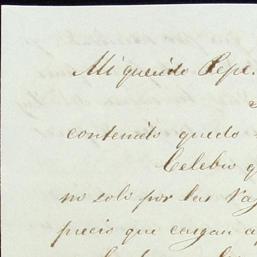 Mi querido Pepe.
contenido quedo
Celebro q
no solo por las
precio que cargan a